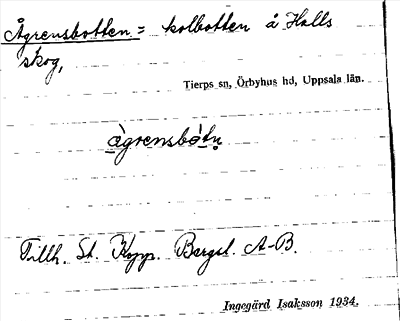 Ågrensbotten = kolbotten å Halls
skog,
Tierps sn, Örbyhus hd, Uppsala län.
ågrensbótn
Tillh. St. Kopp. Bergsl. A-B.
Ingegärd Isaksson 1934.